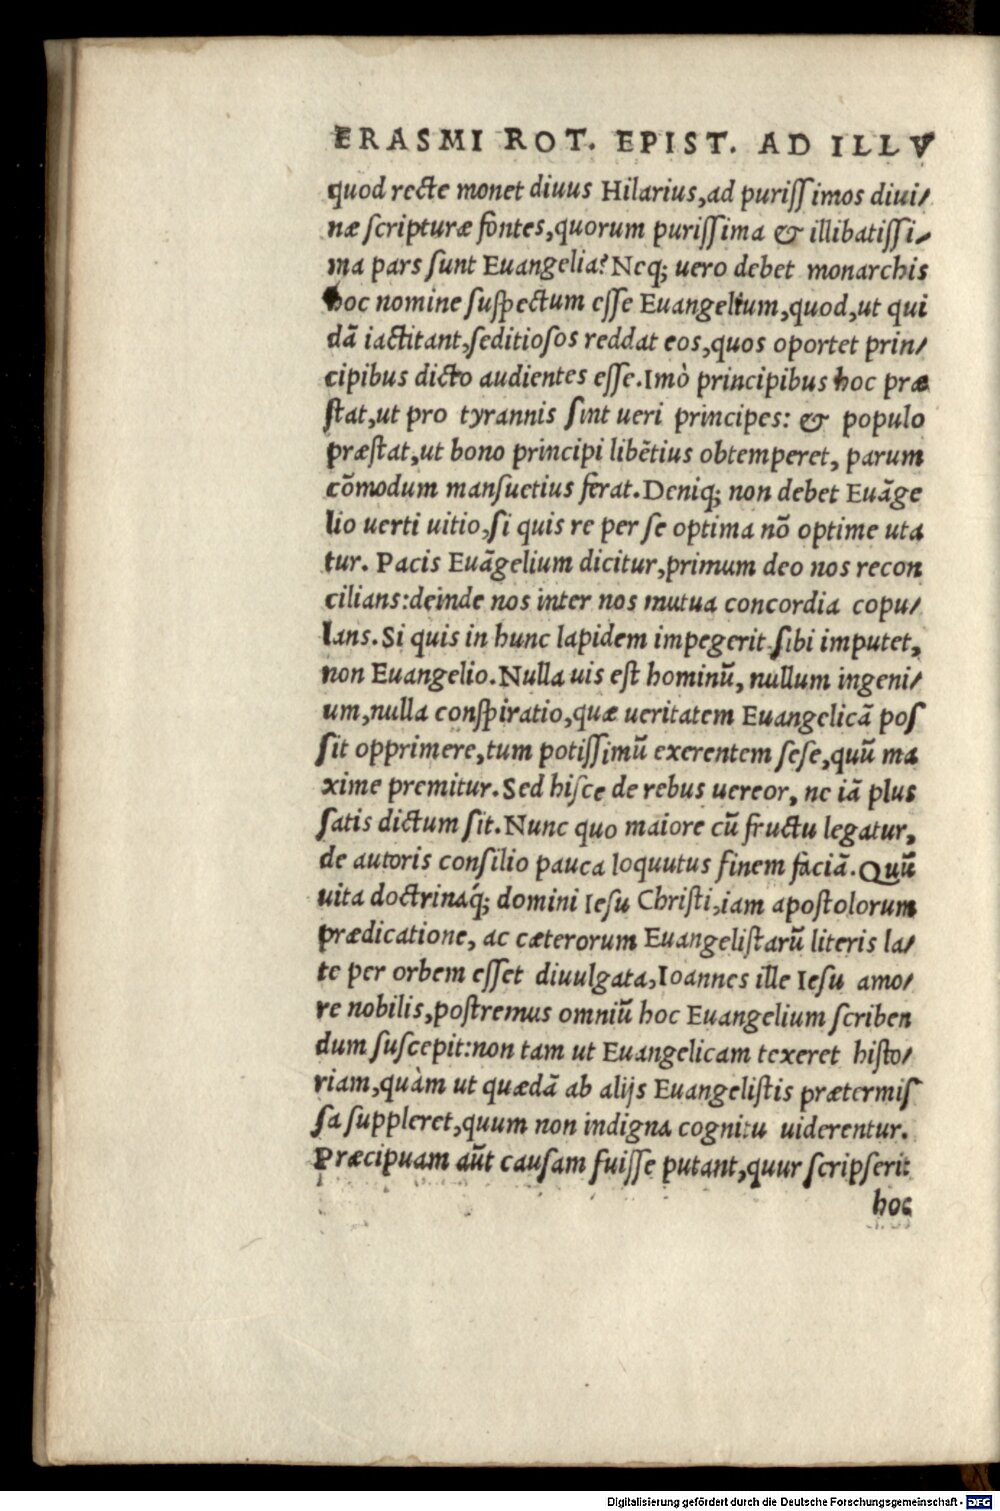 ERASMI ROT. EPIST. AD ILLV
quod recte monet diuus Hilarius,ad puriſſimos diui/
næ ſcripturæ fontes,quorum puriſſima & illibatiſſi/
ma pars ſunt Euangelia? Neq; uero debet monarchis
hoc nomine ſuſpectum eſſe Euangelium,quod,ut qui
dã iactitant,ſeditioſos reddat eos,quos oportet prin/
cipibus dicto audientes eſſe.Imò principibus hoc præ
ſtat,ut pro tyrannis ſint ueri principes: & populo
præſtat,ut bono principi libẽtius obtemperet, parum
cõmodum manſuetius ferat.Deniq; non debet Euãge
lio uerti uitio,ſi quis re per ſe optima nõ optime uta
tur. Pacis Euãgelium dicitur,primum deo nos recon
cilians:deinde nos inter nos mutua concordia copu/
lans.Si quis in hunc lapidem impegerit ſibi imputet,
non Euangelio.Nulla uis eſt hominũ, nullum ingeni/
um,nulla conſpiratio,quæ ueritatem Euangelicã poſ
ſit opprimere,tum potiſſimũ exerentem ſeſe,quũ ma
xime premitur.Sed hiſce de rebus uereor, ne iã plus
ſatis dictum ſit.Nunc quo maiore cũ fructu legatur,
de autoris conſilio pauca loquutus finem faciã.Quũ
uita doctrinaq́; domini Ieſu Chriſti,iam apoſtolorum
prædicatione, ac cæterorum Euangeliſtarũ literis la/
te per orbem eſſet diuulgata,Ioannes ille Ieſu amo/
re nobilis,poſtremus omniũ hoc Euangelium ſcriben
dum ſuſcepit:non tam ut Euangelicam texeret hiſto/
riam,quàm ut quædã ab alijs Euangeliſtis prætermiſ
ſa ſuppleret,quum non indigna cognitu uiderentur.
Præcipuam aũt cauſam fuiſſe putant,quur ſcripſerit
hoc
Digitalisierung gefördert durch die Deutsche Forschungsgemeinschaft - DFG